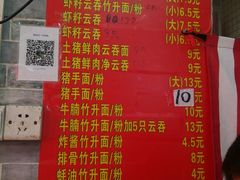 虾籽云吞竹升面/粉
虾籽云吞 (小)6.5元
(大)7.5元
虾籽面/粉 (小)6.5元
土猪鲜肉云吞 9元
土猪鲜肉净云吞 9元
猪手面/粉 (大)13元
猪手面/粉 10
牛腩竹升面/粉 10元
牛腩竹升面/粉加5只云吞 13元
炸酱面/粉 4.5元
排骨竹升面/粉 8元
蚝油竹升面/粉 4元